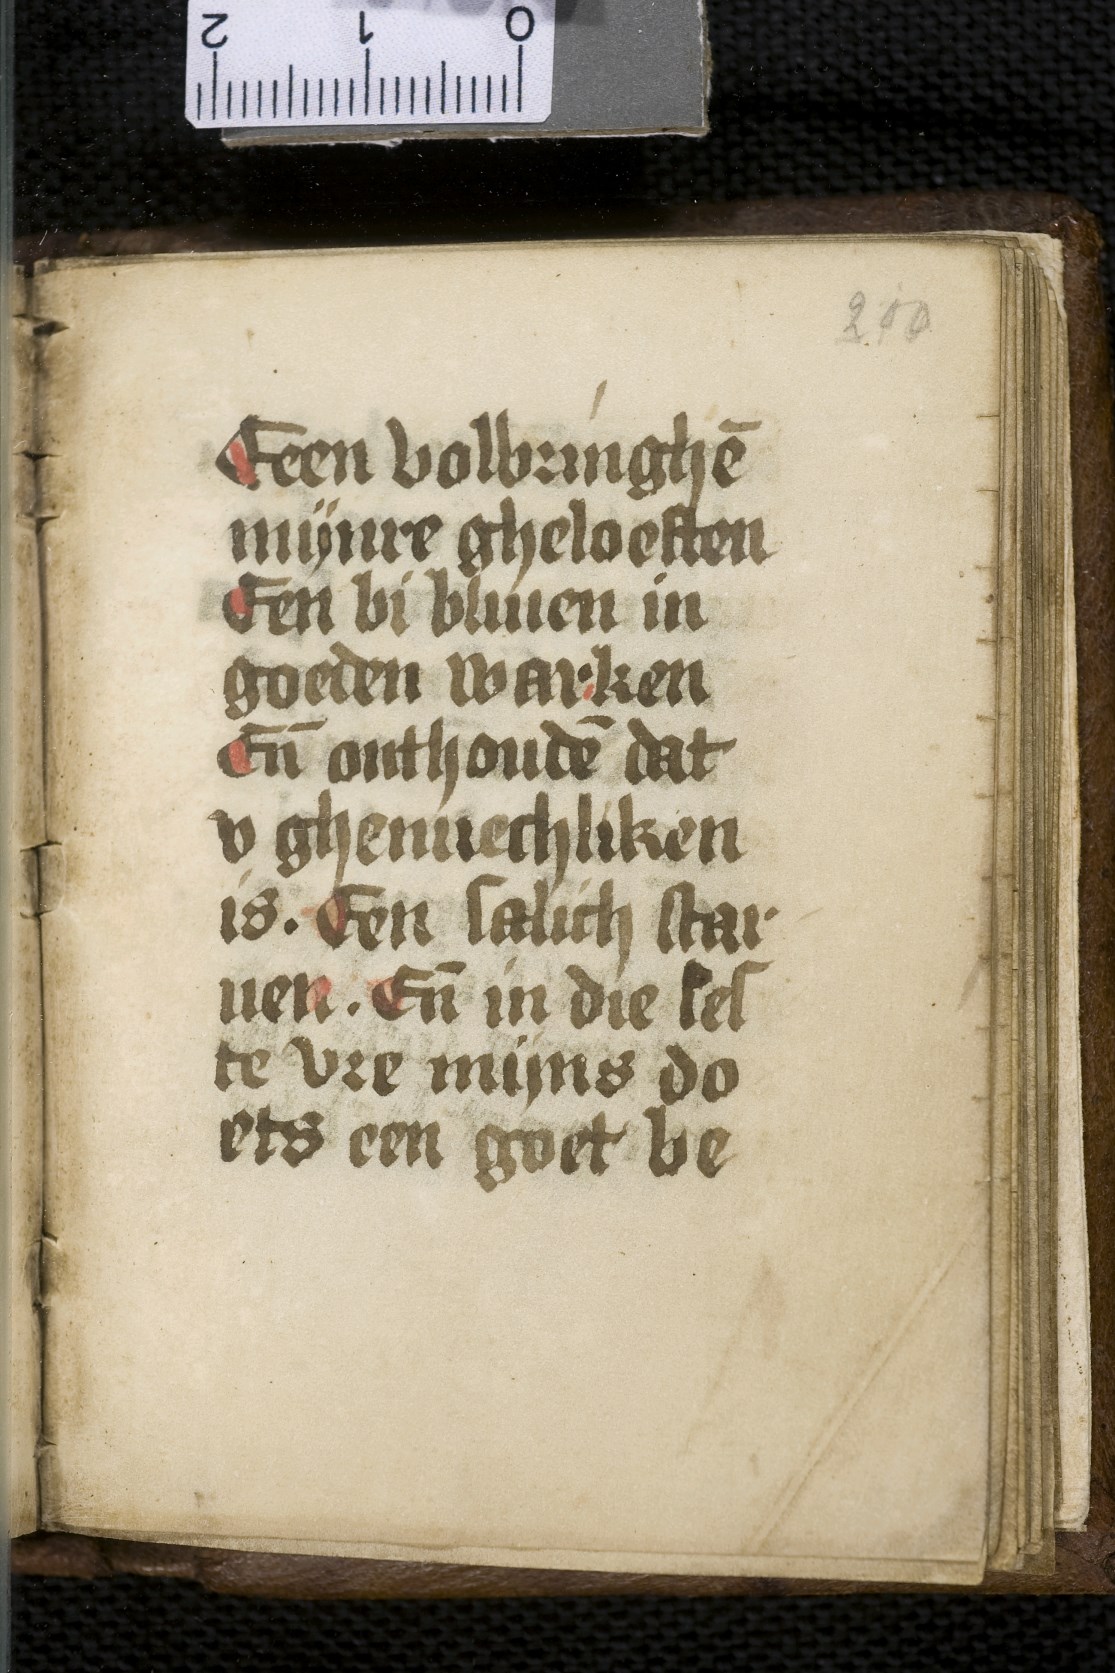 2 1 0
210
Eeen volbringhē
mijnre gheloeften
Een bi bliuen in
goeden warken
Eñ onthoudē dat
v ghenuechliken
is. Een salich star
uen. Eñ in die les
te vre mijns do
ets een goet be